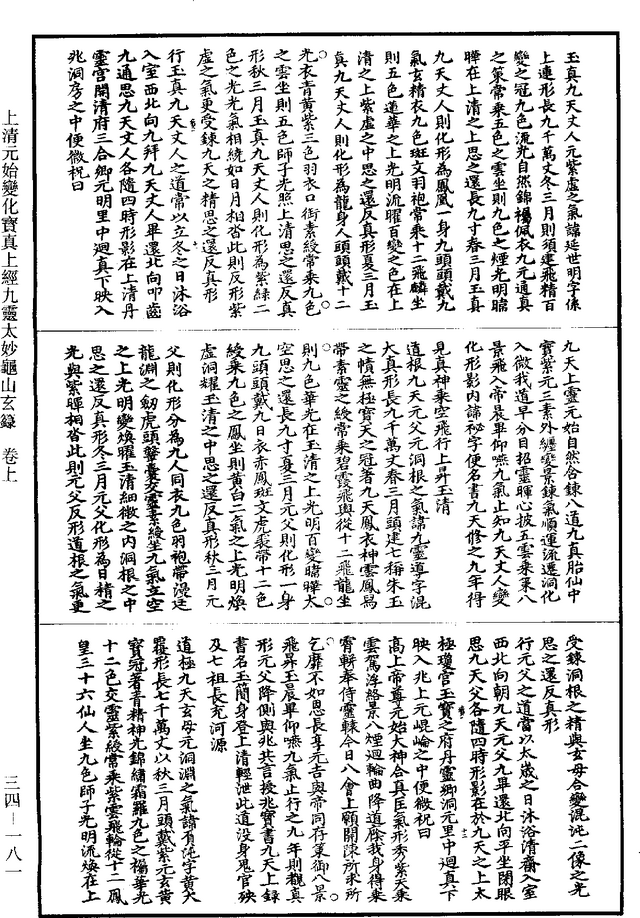 玉真九天丈人元紫虛之氣諱延世明字係
上連形長九千萬丈冬三月則須建飛精百
變之冠九色流光自然錦褐佩衣九元通真
之策常乘五色之雲坐則九色之煙光明暗
曄在上清之上思之還長九寸春三月玉真
九天丈人則化形為鳳凰一身九頭頭戴九
氣玄精衣九色斑文羽袍常乘十二飛麟坐
則五色蓮華之上光明流曜百變之色在上
清之上紫虛之中思之還反真形夏三月玉
真九天丈人則化形為龍身人頭頭戴十二
光衣青黃紫三色羽衣口銜素綬常乘九色
之雲坐則五色師子光照上清思之還反真
形秋三月玉真九天丈人則化形為紫綠二
色之光光氣相繞如日月相沓此則反形紫
虛之氣更受鍊九天之精思之還反真形
行玉真九天丈人之道常以立冬之日沐浴
入室西北向九拜九天丈人畢還北向叩齒
九通思九天丈人各隨四時形影在上清丹
靈宮開清府三合鄉元明里中迴真下映入
兆洞房之中便微祝曰
九天上靈元始自然含鍊八道九真胎仙中
寶紫元三素外纏變景鍊氣順運流遷洞化
入微我道早分日招靈暉心披五雲乘策八
景飛入帝晨畢仰嚥九氣止知九天丈人變
化形影內諦祕字便名書九天修之九年得
見真神乘空飛行上昇玉清
道根九天元父元洞根之氣諱九靈導字混
大真形長九千萬丈春三月頭建七稱朱玉
之幘無極寶天之冠著九天鳳衣神雲鳳舄
帶素靈之綬常乘碧霞飛輿從十二飛龍坐
則九色華光在玉清之上光明百變曄曄太
空思之還長九寸夏三月元父則化形一身
九頭頭戴九日衣赤鳳斑文虎裘帶十二色
綬乘九色之鳳坐則黃白二氣之上光明煥
虛洞耀玉清之中思之還反真形秋三月元
父則化形分為九人同衣九色羽袍帶流延
龍淵之劍虎頭鞶囊交靈素綬坐九氣立空
之上光明變煥曜玉清細微之內洞根之中
思之還反真形冬三月元父化形為日精之
光與紫暉相沓此則元父反形道根之氣更
受鍊洞根之精與玄母合變混沌二像之光
思之還反真形
行元父之道當以太歲之日沐浴清齋入室
西北向朝九天元父九畢還北向平坐閉眼
思九天父各隨四時形影在於九天之上太
極瓊宮玉寶之府丹靈鄉洞元里中迴真下
映入兆上元崐崘之中便微祝曰
高上帝尊元始大神合真匠氣形秀紫天乘
雲駕浮絡景八煙迴輪曲降道廕我身得乘
霄軿奉侍靈轅今日八會上願開陳所求所
乞靡不如恩長享元吉與帝同存策御八景
飛昇玉晨畢仰嚥九氣止行之九年則觀真
形元父降側與兆共言授兆寶書九天上錄
書名玉簡身登上清輕泄此道沒身鬼官殃
及七祖長充河源
道極九天玄母元洞淵之氣諱有流字黃大
羅形長七千萬丈以秋三月頭戴紫元玄黃
寶冠著青精神光錦繡霜羅九色之褐華光
十二色交靈紫綬常乘紫雲飛輪從十二鳳
皇三十六仙人坐九色師子光明流煥在上
上清元始變化寶真上經九靈太妙龜山玄籙　卷上
三四—一八一